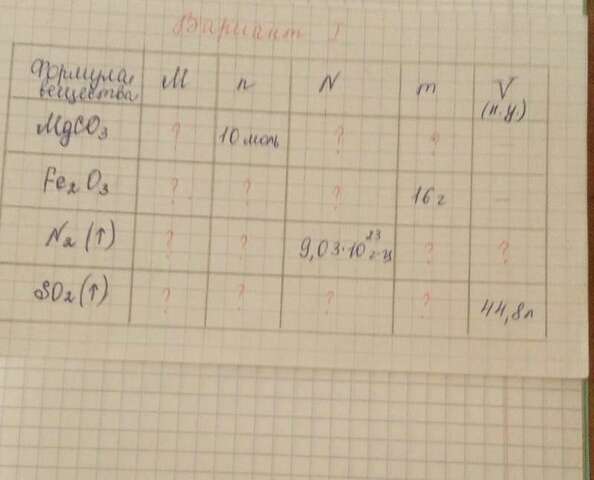 Вариант I
Формула вещества M n N m V (н.у)
MgCO3 ? 10 моль ? ?
Fe2O3 ? ? ? 16 г —
N2 (↑) ? ? 9,03·10²³ г-ц ? ?
SO2 (↑) ? ? ? ? 44,8л